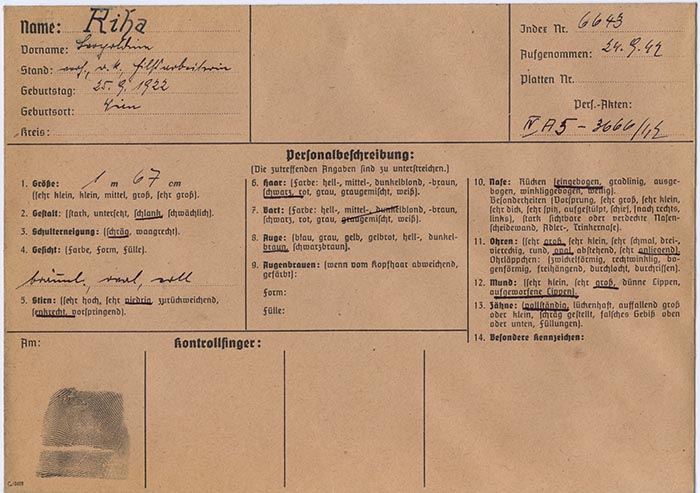 Name: Riha
Vorname: Leopoldine
Stand: verh., o.K., Hilfsarbeiterin
Geburtstag: 25.9.1922
Geburtsort: Wien
Kreis:
Index Nr. 6643
Aufgenommen: 24.9.42
Platten Nr.
Pers.-Akten:
IV A5 - 3666/42
Personalbeschreibung:
(Die zutreffenden Angaben sind zu unterstreichen.)
1. Größe: 1 m 67 cm
(sehr klein, klein, mittel, groß, sehr groß).
2. Gestalt: (stark, untersetzt, schlank, schwächlich).
3. Schulterneigung: (schräg, waagrecht).
4. Gesicht: (Farbe, Form, Fülle).
bräunl., oval, voll
5. Stirn: (sehr hoch, sehr niedrig, zurückweichend,
senkrecht, vorspringend).
6. Haar: (Farbe: hell-, mittel-, dunkelblond, -braun,
schwarz, rot, grau, graugemischt, weiß).
7. Bart: (Farbe: hell-, mittel-, dunkelblond, -braun,
schwarz, rot, grau, graugemischt, weiß).
8. Auge: (blau, grau, gelb, gelbrot, hell-, dunkel-
braun, schwarzbraun).
9. Augenbrauen: (wenn vom Kopfhaar abweichend,
gefärbt):
Form:
Fülle:
10. Nase: Rücken (eingebogen, gradlinig, ausge-
bogen, winkliggebogen, wellig).
Besonderheiten (Vorsprung, sehr groß, sehr klein,
sehr dick, sehr spin, aufgestülpt, schief, [nach rechts,
links], stark sichtbare oder verdeckte Nasen-
scheidewand, Adler-, Trinkernase).
11. Ohren: (groß, sehr klein, sehr schmal, drei-,
viereckig, rund, oval, abstehend, sehr anliegend):
Ohrläppchen: (zwickelförmig, rechtwinklig, bo-
genförmig, freihängend, durchlocht, durchrissen).
12. Mund: (sehr klein, sehr groß, dünne Lippen,
aufgeworfene Lippen).
13. Zähne: (vollständig, lückenhaft, auffallend groß
oder klein, schräg gestellt, falsches Gebiß oben
oder unten, Füllungen).
14. Besondere Kennzeichen:
Am:
Kontrollfinger: